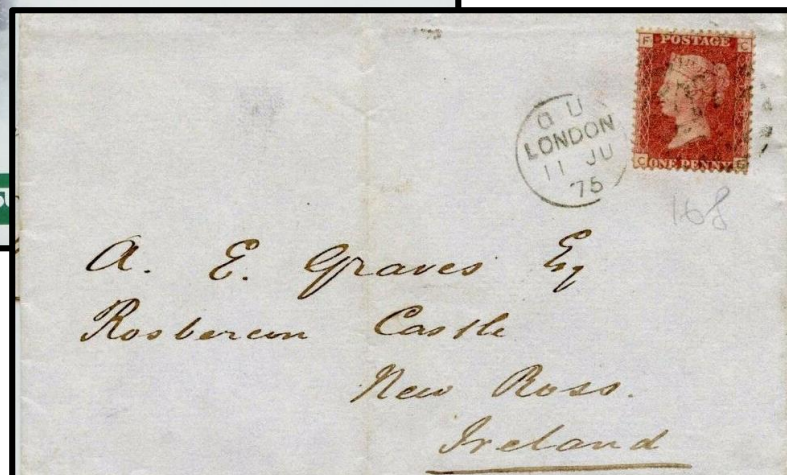 F POSTAGE C
C ONE PENNY
LONDON
11 JU
75
168
A. E. Graves Esq
Rosbercon Castle
New Ross.
Ireland